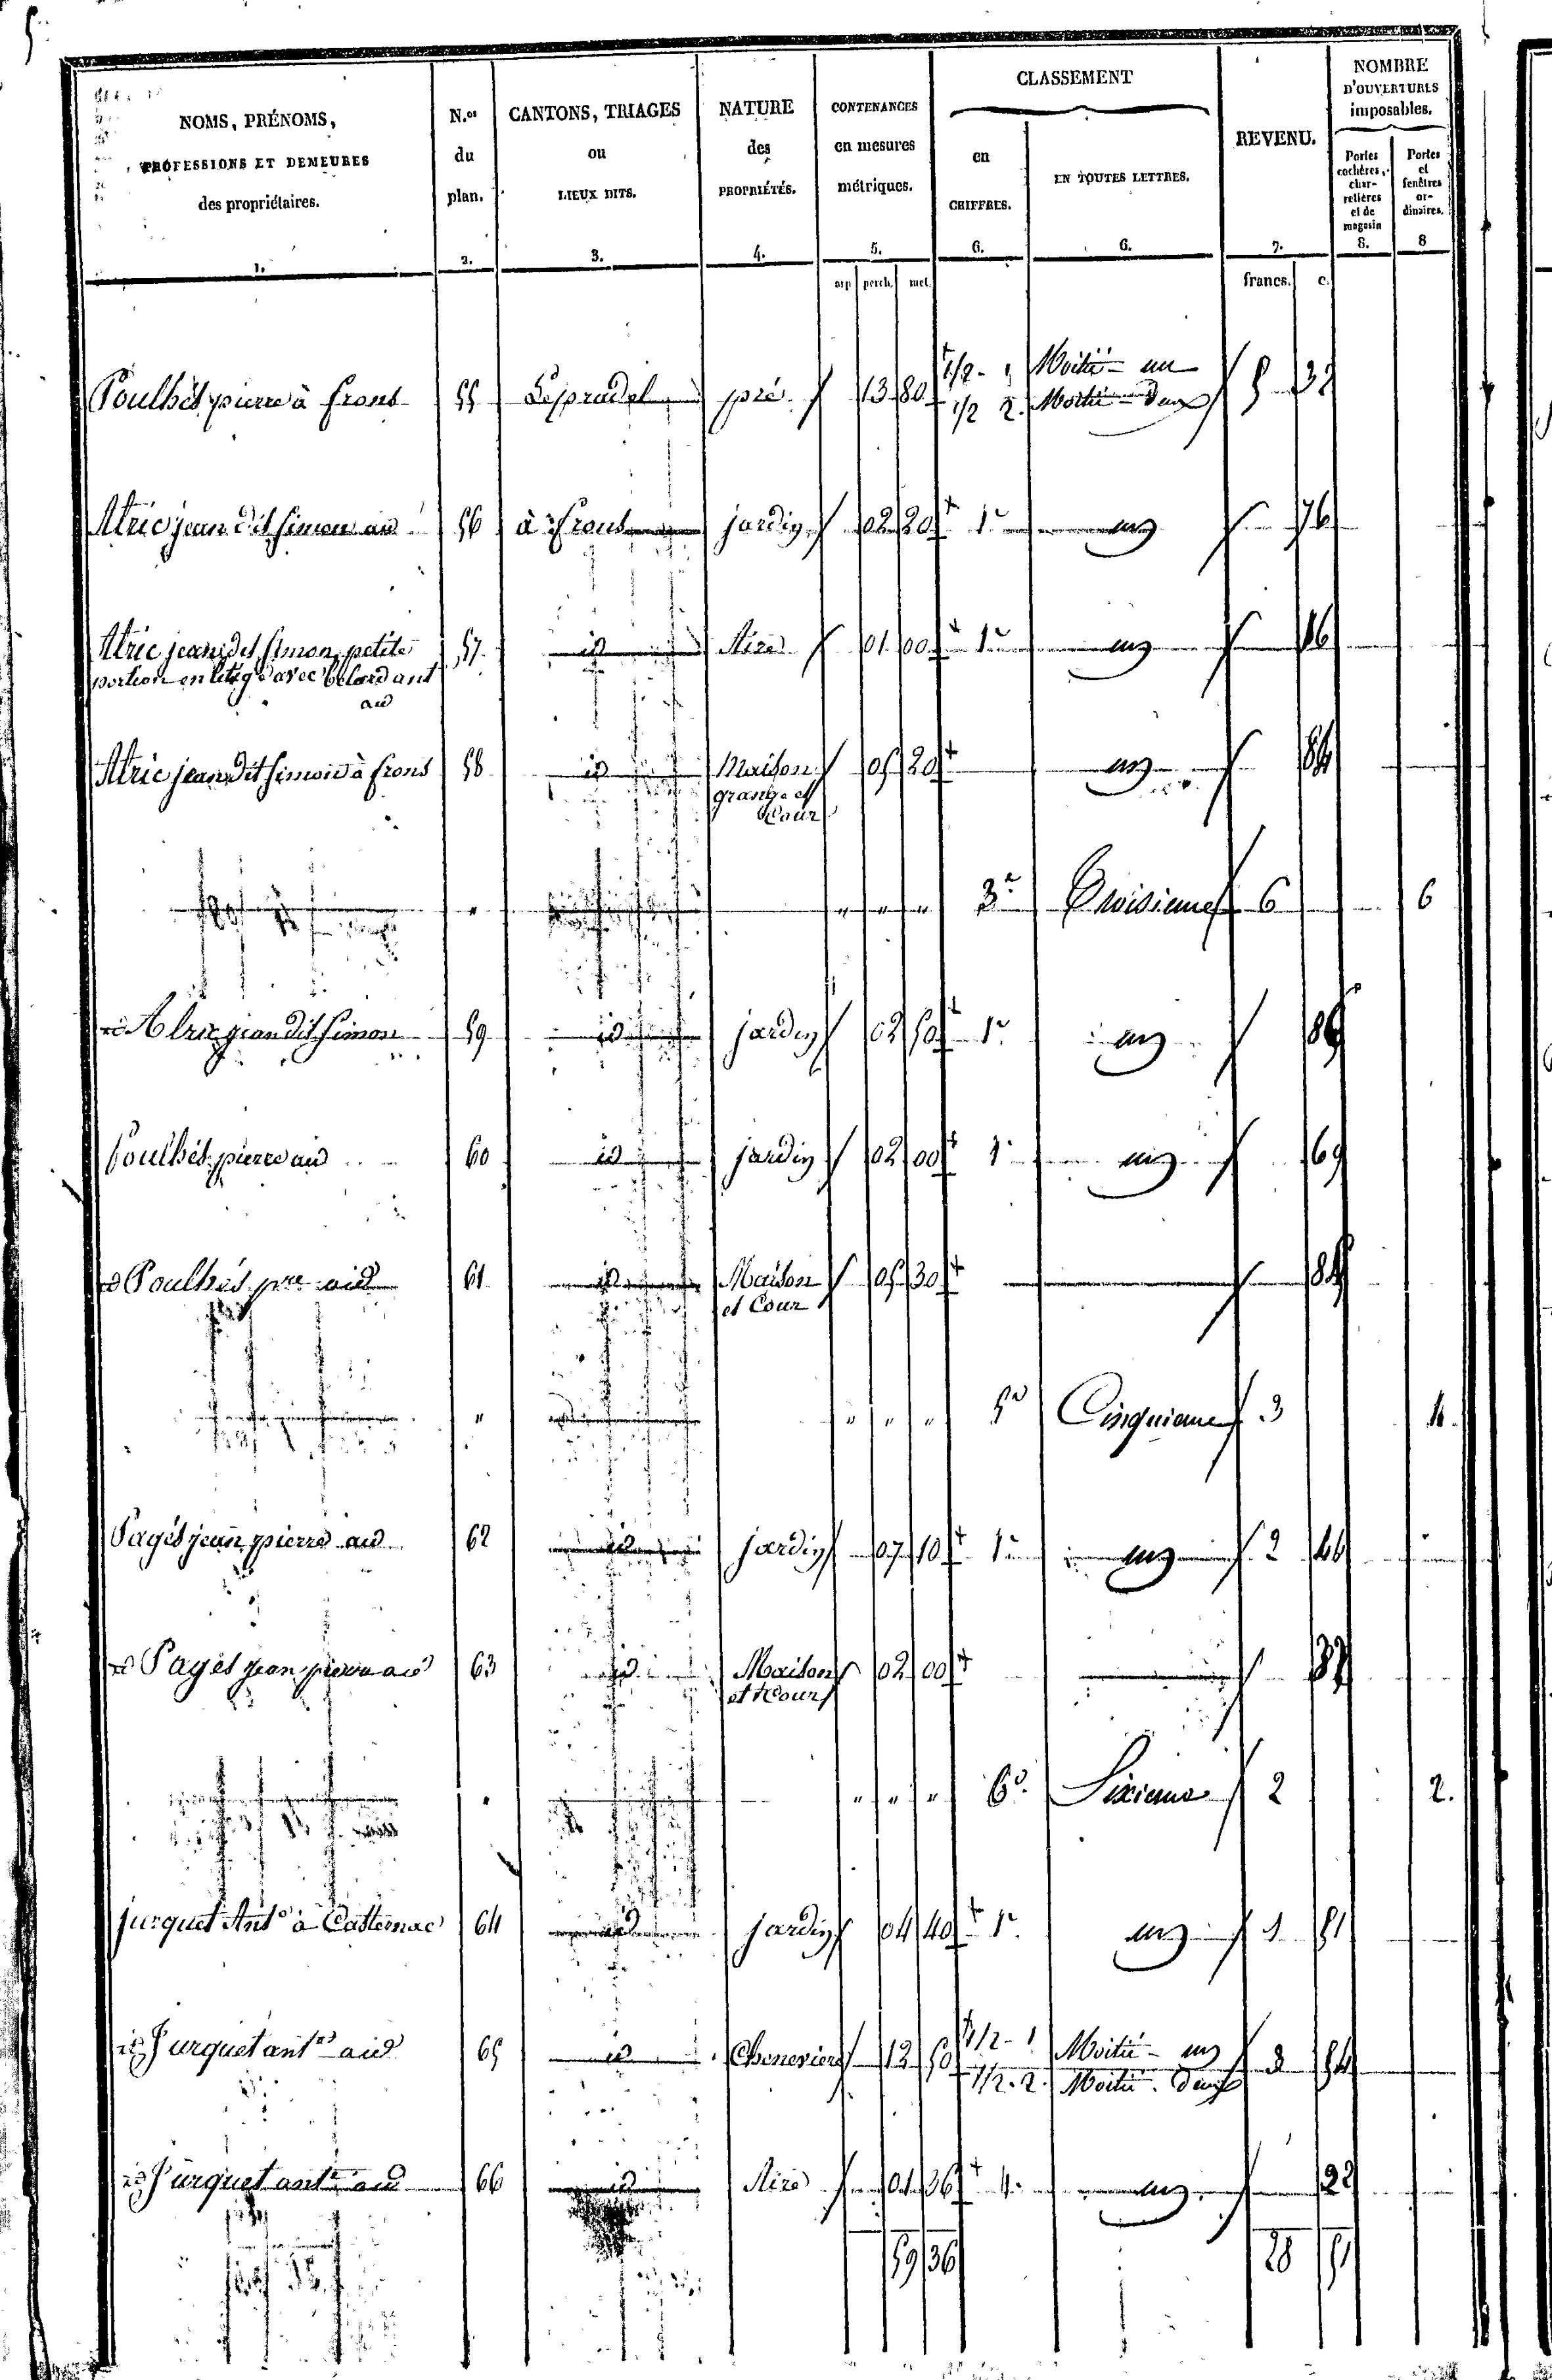 5
NOMS, PRÉNOMS,
PROFESSIONS ET DEMEURES
des propriétaires.
1.
N.os
du
plan.
2.
CANTONS, TRIAGES
ou
LIEUX DITS.
3.
NATURE
des
PROPRIÉTÉS.
4.
CONTENANCES
en mesures
métriques.
5.
CLASSEMENT
en
CHIFFRES.
6.
EN TOUTES LETTRES.
6.
REVENU.
7.
NOMBRE
D'OUVERTURES
imposables.
Portes
cochères,
char-
retières
et de
magasin
8.
Portes
et
fenêtres
or-
dinaires.
8
arp perch. met. francs. c.
Poulhés pierre à frons 55 Lepradel pré 13 80 1/2 - 1 Moitié - un 5 32
1/2 2. Moitié - deux
Alric jean dit Simon aud 56 à frons jardin 02 20 1e un 76
Alric jean dit Simon petite 57 id Aire 01 00 1e un 16
portion en litige avec belard ant
aud
Alric jean dit Simon à frons 58 id Maison 05 20 un 84
grange et
Cour
" " " " 3e Troisieme 6 6
id Alric jean dit Simon 59 id jardin 02 50 1e un 86
Poulhés pierre aud 60 id jardin 02 00 1e un 69
id Poulhés pre aud 61 id Maison 05 30 84
et Cour
" " " " 5e Cinquieme 3 4.
Pagés jean pierre aud 62 id jardin 07 10 1e un 2 46
id Pagés jean pierre aud 63 id Maison 02 00 32
et Cour
" " " " 6e Sixieme 2 2.
jurquet Ante à Casternac 64 id jardin 04 40 1e un 1 51
id Jurquet ante aud 65 id Cheneviere 12 50 1/2 - 1 Moitié - un 3 54
1/2 . 2. Moitié . deux
id Jurquet ante aud 66 id Aire 01 36 1e un 22
59 36 28 51